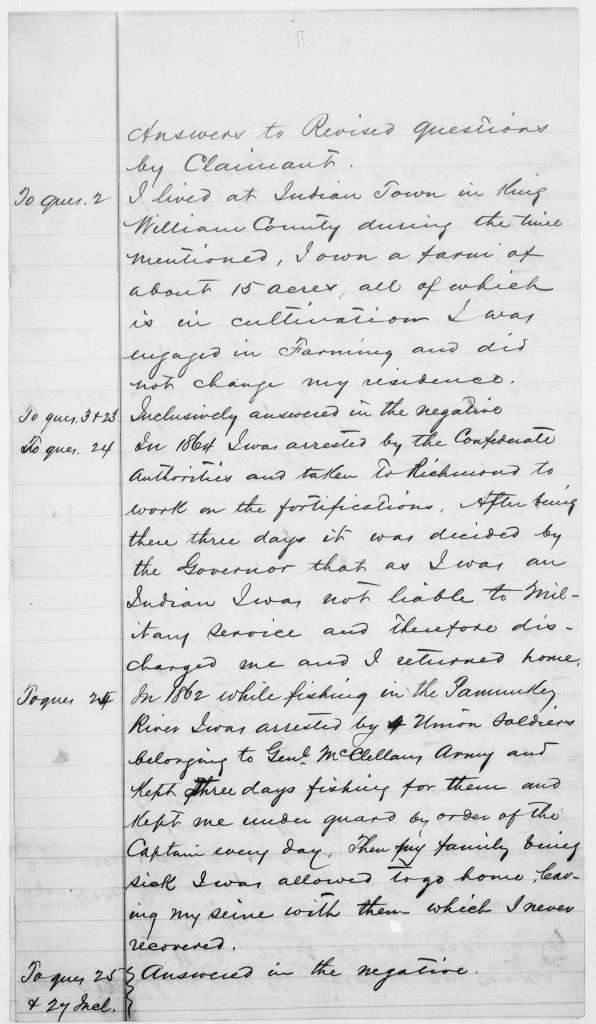 Answers to Revised Questions
by Claimant.
To ques. 2 I lived at Indian Town in King
William County during the time
mentioned, I own a farm of
about 15 acres, all of which
is in cultivation I was
engaged in Farming and did
not change my residence.
To ques. 3 + 23 Inclusively answered in the negative
To ques. 24 In 1864 I was arrested by the Confederate
Authorities and taken to Richmond to
work on the fortifications. After being
there three days it was decided by
the Governor that as I was an
Indian I was not liable to Mil-
itary service and therefore dis-
charged me and I returned home.
To ques 24 In 1862 while fishing in the Pamunkey
River I was arrested by 4 Union Soldiers
belonging to Genl. McClellans Army and
Kept three days fishing for them and
Kept me under guard by order of the
Captain every day. Then my family being
sick I was allowed to go home, leav-
ing my seine with them which I never
recovered.
To ques 25 Answered in the negative.
& 27 Incl.